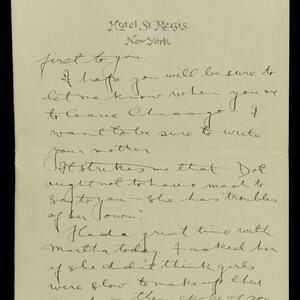 Hotel St. Regis
New York
first to you.
I hope you will be sure to
let me know when you are
to leave Chicago - I
want to be sure to write
your mother
It strikes me that Dot
ought not to have much to
say to you - she has troubles
of her own!
Had a great time with
Martha today. I asked her
if she didn't think girls
were slow to make up that
they spoke of you